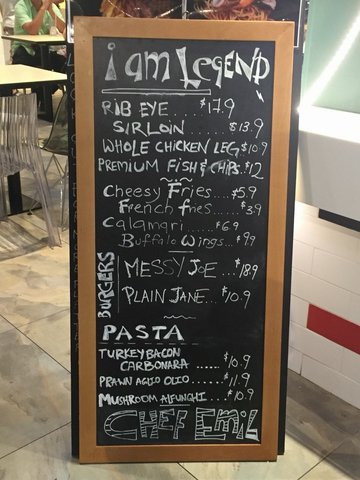 i am LEGEND
RIB EYE .... $17.9
SIRLOIN .... $13.9
WHOLE CHICKEN LEG. $10.9
PREMIUM FISH & CHIPS. $12
CHEESY FRIES .... $5.9
FRENCH fries .... $3.9
Calamari .... $6.9
Buffalo Wings... $9.9
BURGERS
MESSY JOE .... $18.9
PLAIN JANE .... $10.9
PASTA
TURKEY BACON
CARBONARA ...... $10.9
PRAWN AGLIO OLIO ...... $11.9
MUSHROOM ALFUNGHI ... $10.9
CHEF EMIL